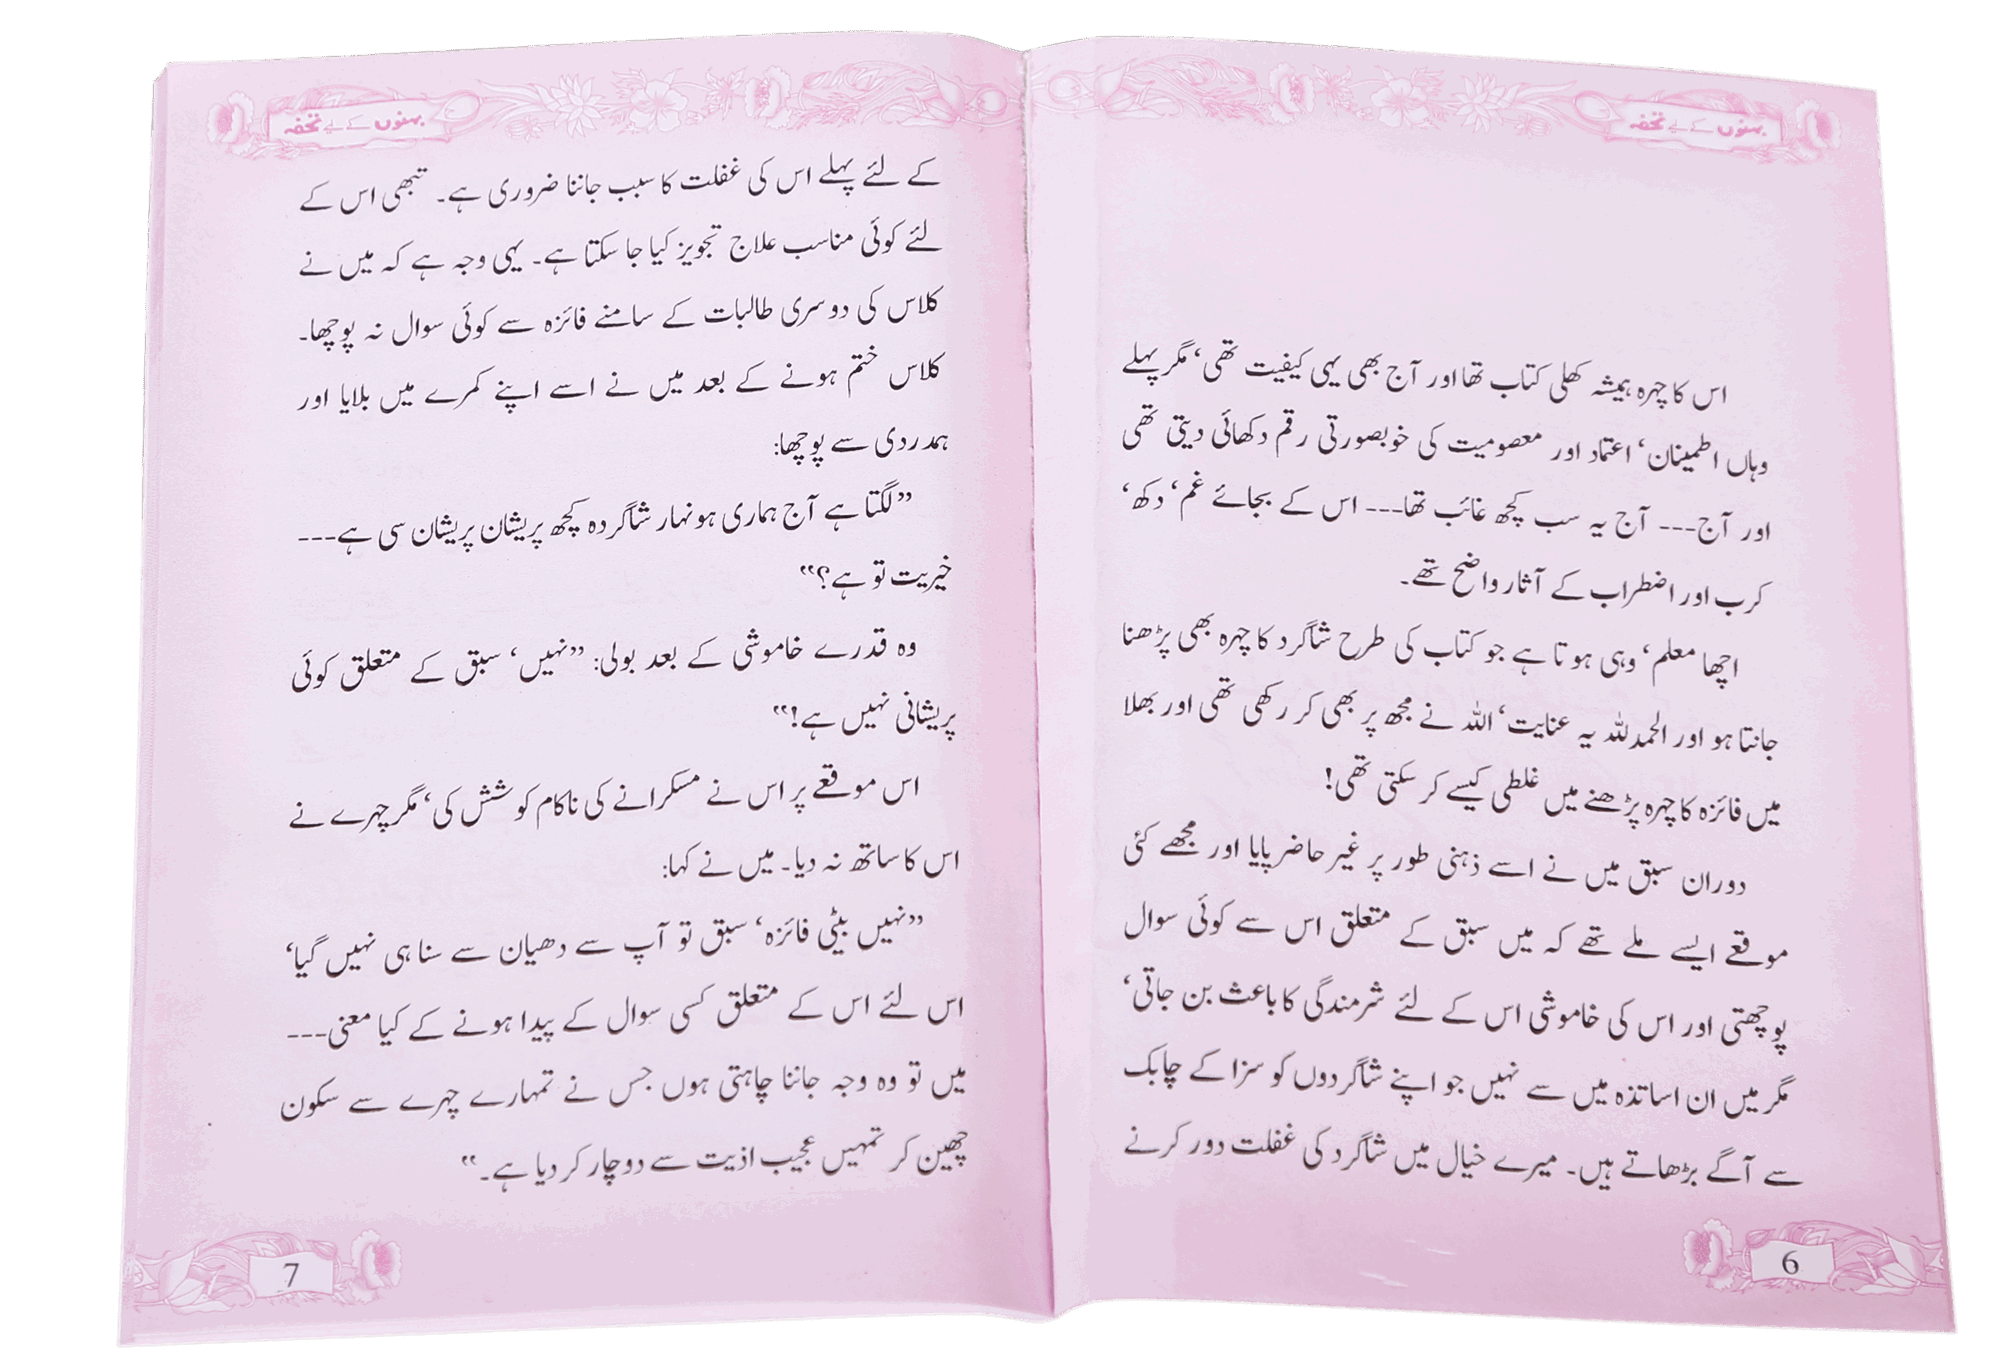 بہنوں کے لیے تحفہ
اس کا چہرہ ہمیشہ کھلی کتاب تھا اور آج بھی یہی کیفیت تھی، مگر پہلے
وہاں اطمینان، اعتماد اور معصومیت کی خوبصورتی رقم دکھائی دیتی تھی
اور آج--- آج یہ سب کچھ غائب تھا--- اس کے بجائے غم، دکھ،
کرب اور اضطراب کے آثار واضح تھے۔
اچھا معلم، وہی ہوتا ہے جو کتاب کی طرح شاگرد کا چہرہ بھی پڑھنا
جانتا ہو اور الحمدللہ یہ عنایت، اللہ نے مجھ پر بھی کر رکھی تھی اور بھلا
میں فائزہ کا چہرہ پڑھنے میں غلطی کیسے کر سکتی تھی!
دوران سبق میں نے اسے ذہنی طور پر غیر حاضر پایا اور مجھے کئی
موقعے ایسے ملے تھے کہ میں سبق کے متعلق اس سے کوئی سوال
پوچھتی اور اس کی خاموشی اس کے لئے شرمندگی کا باعث بن جاتی،
مگر میں ان اساتذہ میں سے نہیں جو اپنے شاگردوں کو سزا کے چابک
سے آگے بڑھاتے ہیں۔ میرے خیال میں شاگرد کی غفلت دور کرنے
6
بہنوں کے لیے تحفہ
کے لئے پہلے اس کی غفلت کا سبب جاننا ضروری ہے۔ تبھی اس کے
لئے کوئی مناسب علاج تجویز کیا جا سکتا ہے۔ یہی وجہ ہے کہ میں نے
کلاس کی دوسری طالبات کے سامنے فائزہ سے کوئی سوال نہ پوچھا۔
کلاس ختم ہونے کے بعد میں نے اسے اپنے کمرے میں بلایا اور
ہمدردی سے پوچھا:
”لگتا ہے آج ہماری ہونہار شاگردہ کچھ پریشان پریشان سی ہے---
خیریت تو ہے؟“
وہ قدرے خاموشی کے بعد بولی: ”نہیں، سبق کے متعلق کوئی
پریشانی نہیں ہے!“
اس موقعے پر اس نے مسکرانے کی ناکام کوشش کی، مگر چہرے نے
اس کا ساتھ نہ دیا۔ میں نے کہا:
”نہیں بیٹی فائزہ، سبق تو آپ سے دھیان سے سنا ہی نہیں گیا،
اس لئے اس کے متعلق کسی سوال کے پیدا ہونے کے کیا معنی---
میں تو وہ وجہ جاننا چاہتی ہوں جس نے تمہارے چہرے سے سکون
چھین کر تمہیں عجیب اذیت سے دوچار کر دیا ہے۔“
7